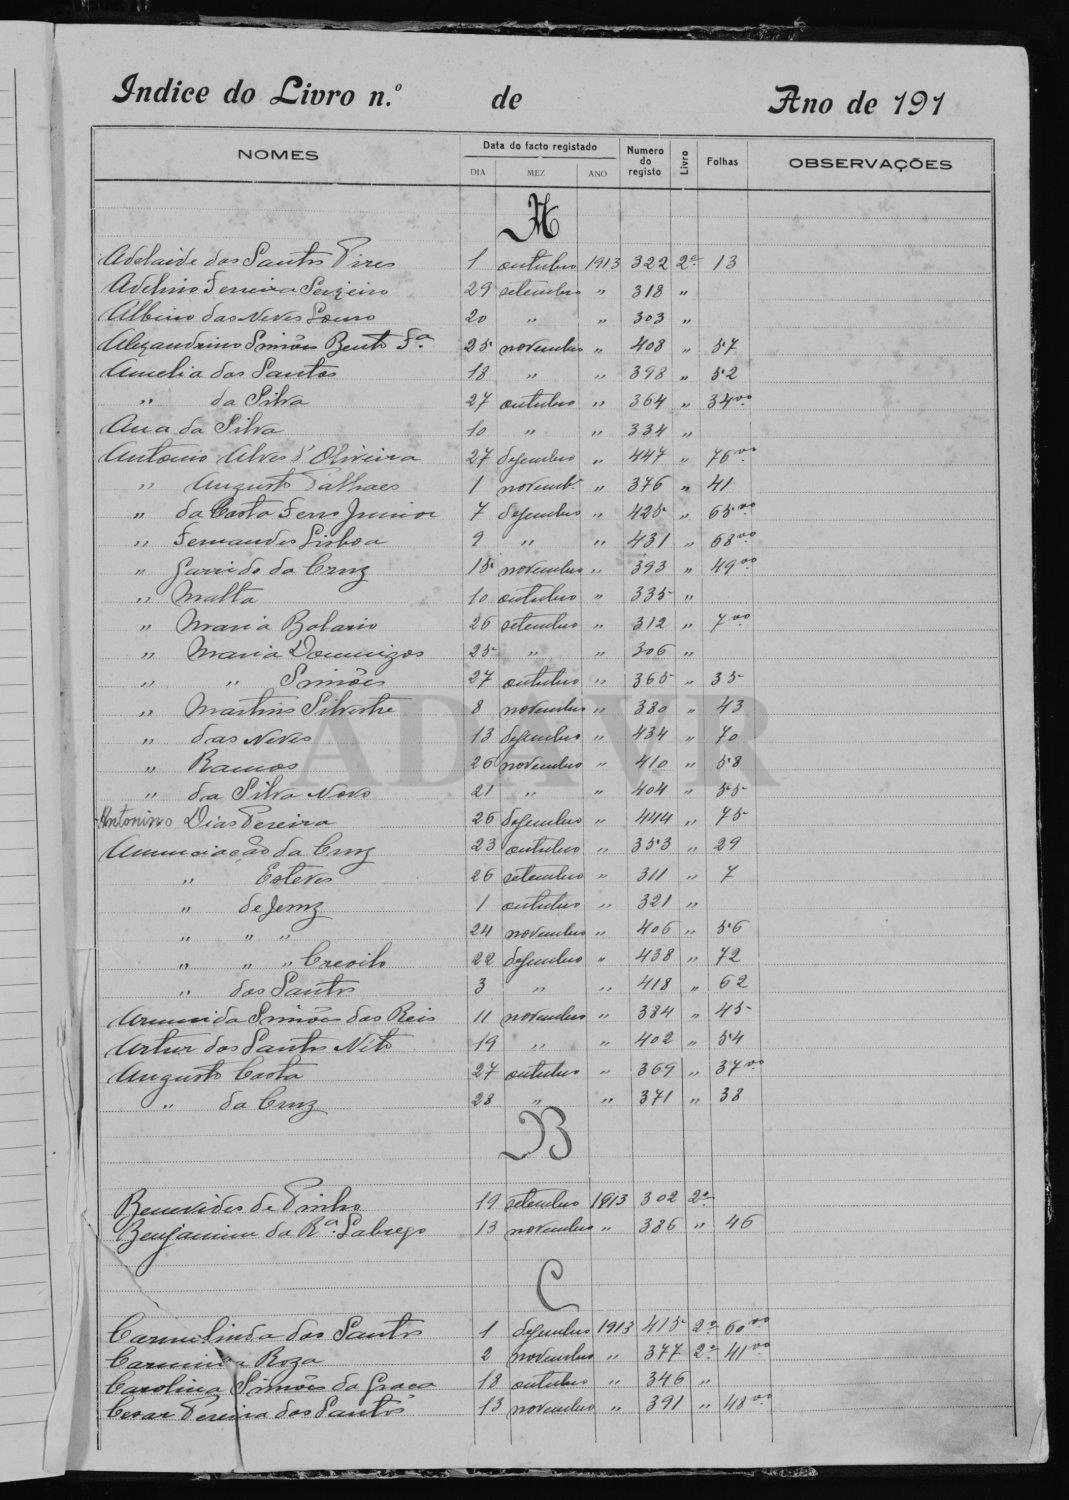 Indice do Livro n.º de Ano de 191
NOMES Data do facto registado Numero do registo Livro Folhas OBSERVAÇÕES
DIA MEZ ANO
A
Adelaide dos Santos Pires 1 outubro 1913 322 2º 13
Adelino Ferreira 29 setembro " 318 "
Albino das Neves Louro 20 " " 303 "
Alexandrino Simões Bento Sª 25 novembro " 408 " 57
Amelia dos Santos 18 " " 398 " 52
" da Silva 27 outubro " 364 " 34vo
Ana da Silva 10 " " 334 "
Antonio Alves d'Oliveira 27 dezembro " 447 " 76vo
" Augusto Palhaes 1 novembº " 376 " 41
" da Costa Ferro Junior 7 dezembro " 425 " 65vo
" Fernandes Lisboa 9 " " 431 " 68vo
" Garrido da Cruz 15 novembro " 393 " 49vo
" Malta 10 outubro " 335 "
" Maria Bolario 26 setembro " 312 " 7vo
" Maria Domingos 25 " " 306 "
" " Simões 27 outubro " 365 " 35
" Martins Silvestre 8 novembro " 380 " 43
" das Neves 13 dezembro " 434 " 70
" Ramos 26 novembro " 410 " 58
" da Silva Novo 21 " " 404 " 55
Antonino Dias Pereira 26 dezembro " 444 " 75
Anunciação da Cruz 23 outubro " 353 " 29
" Esteves 26 setembro " 311 " 7
" de Jesuz 1 outubro " 321 "
" " " 24 novembro " 406 " 56
" " " Crevilo 22 dezembro " 438 " 72
" dos Santos 3 " " 418 " 62
Armenida Simões dos Reis 11 novembro " 384 " 45
Artur dos Santos Nito 19 " " 402 " 54
Augusto Costa 27 outubro " 369 " 37vo
" da Cruz 28 " " 371 " 38
B
Benevides de Pinho 19 setembro 1913 302 2º
Benjamim da Rª Labrego 13 novembro " 386 " 46
C
Carmelinda dos Santos 1 dezembro 1913 415 2º 60vo
Carmina Roza 2 novembro " 377 2º 41vo
Carolina Simões da Graça 18 outubro " 346 "
Cesar Pereira dos Santos 13 novembro " 391 " 48vo
ADAVR